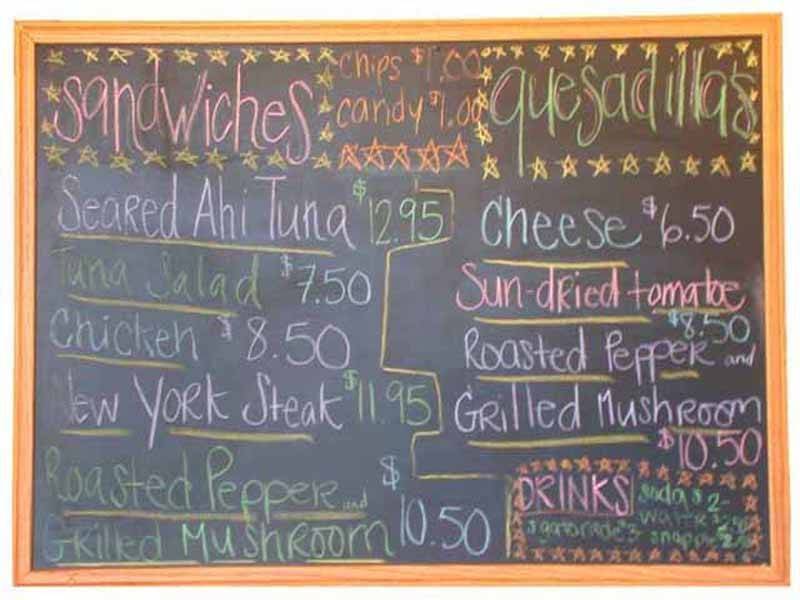 Sandwiches
Seared Ahi Tuna $12.95
Tuna Salad $7.50
Chicken $8.50
New York Steak $11.95
Roasted Pepper and
Grilled Mushroom $10.50
chips $1.00
candy $1.00
quesadilla's
Cheese $6.50
Sun-dried tomatoe
$8.50
Roasted Pepper and
Grilled Mushroom
$10.50
DRINKS
soda $2-
water
gatorade $3-
snapple